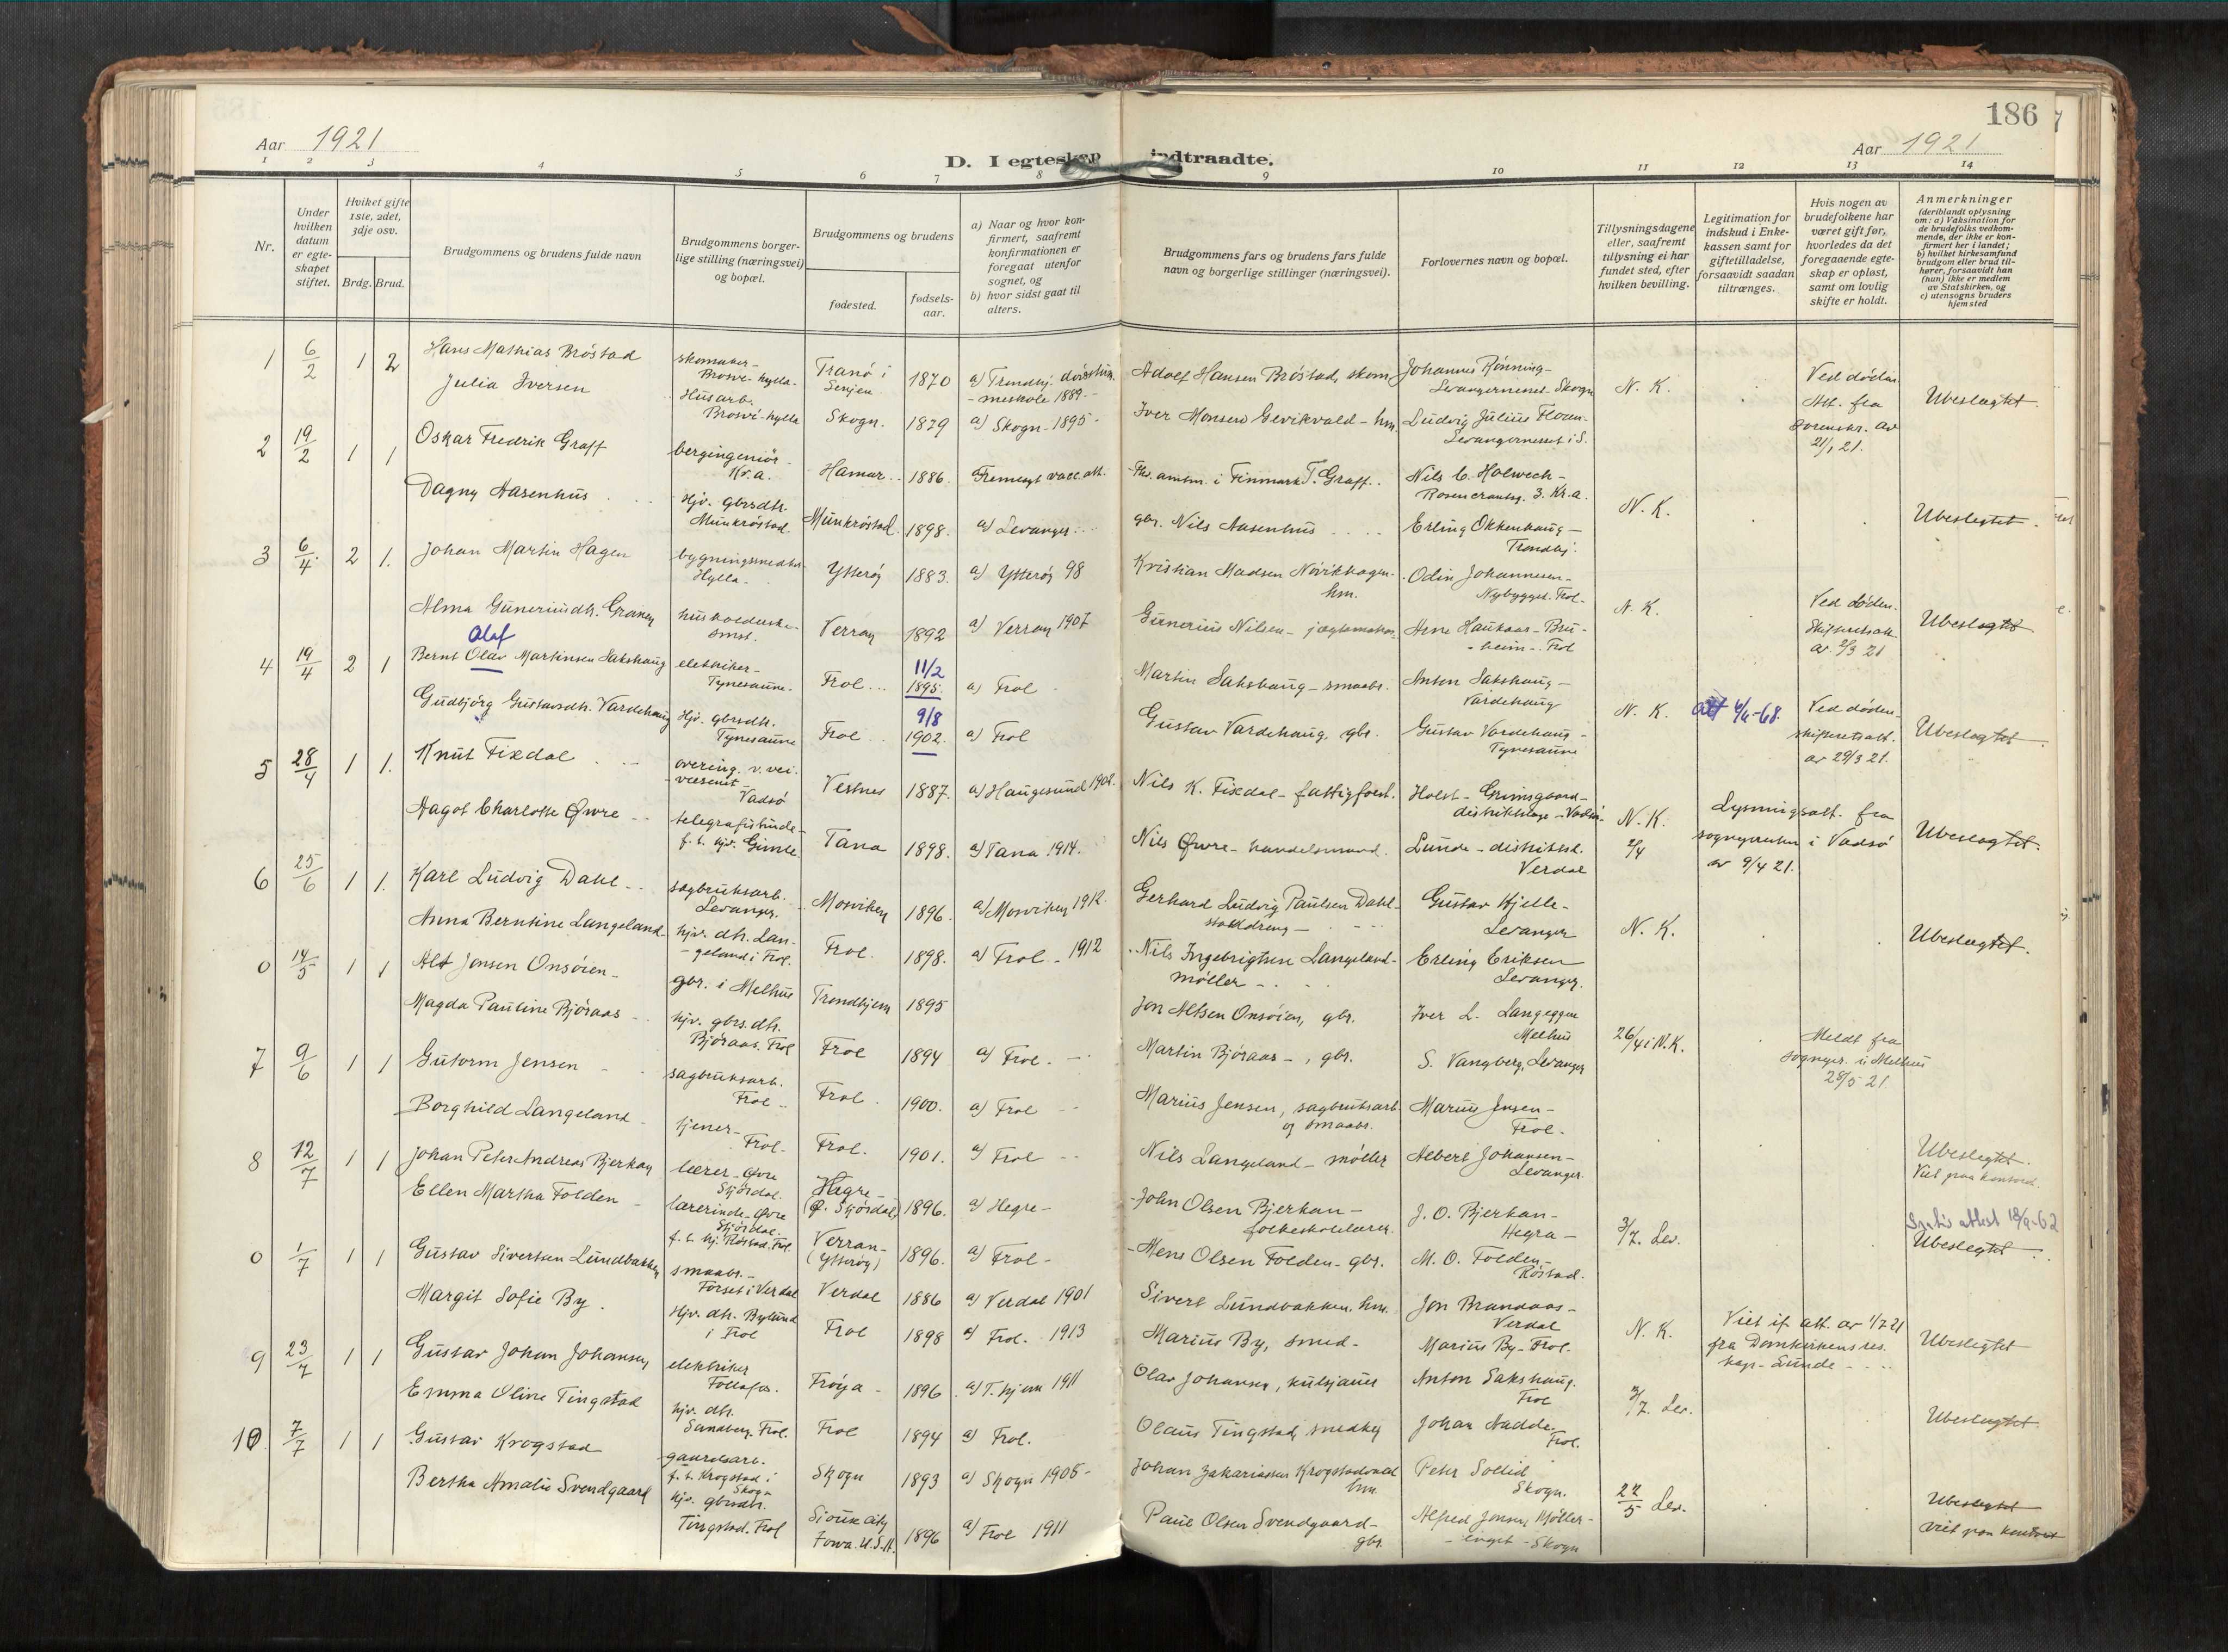 186
Aar 1921
D. I egteskap indtraadte.
Aar 1921
1 2 3 4 5 6 7 8 9 10 11 12 13 14
Nr.
Under hvilken datum er egteskapet stiftet.
Hvilket gifte 1ste, 2det, 3dje osv.
Brdg. Brud.
Brudgommens og brudens fulde navn
Brudgommens borgerlige stilling (næringsvei) og bopæl.
Brudgommens og brudens
fødested.
fødsels-aar.
a) Naar og hvor konfirmert, saafremt konfirmationen er foregaat utenfor sognet, og
b) hvor sidst gaat til alters.
Brudgommens fars og brudens fars fulde navn og borgerlige stillinger (næringsvei).
Forlovernes navn og bopæl.
Tillysningsdagene eller, saafremt tillysning ei har fundet sted, efter hvilken bevilling.
Legitimation for indskud i Enkekassen samt for giftetilladelse, forsaavidt saadan tiltrænges.
Hvis nogen av brudefolkene har været gift før, hvorledes da det foregaaende egteskap er opløst, samt om lovlig skifte er holdt.
Anmerkninger
(deriblandt oplysning om: a) Vaksination for de brudefolks vedkommende, der ikke er konfirmert her i landet;
b) hvilket kirkesamfund brudgom eller brud tilhører, forsaavidt han (hun) ikke er medlem av Statskirken, og
c) utensogns bruders hjemsted
1 6/2 1 2 Hans Mathias Bröstad skomaker- Tranö i Senjen 1870 a) Trondhj. 1889 Adolf Hansen Bröstad, skom. Johannes Rönning- Levangernesset-Skogn N. K. Ved döden Att. fra Sorenskr. av 21/1 21. Ubeslegtet
Julia Iversen Husarb. Skogn. 1879 a) Skogn-1895- Iver Monsen Gevikvald-hm. Ludvig Julius Floan- Levangernesset i S.
2 19/2 1 1 Oskar Fredrik Graff bergingeniör- Kr.a. Hamar 1886 Fremlagt vacc. att. Fhv. amtm. i Finmark T. Graff. Nils C. Holwech- Rosencrantzg. 3. Kr.a. N. K. Ubeslegtet
Dagny Aasenhus Hjv. gbrsdtr. Munkröstad Munkröstad. 1898. a) Levanger gbr. Nils Aasenhus Erling Okkenhaug- Trondhj.
3 6/4 2 1. Johan Martin Hagen Hylla- Ytteröy 1883. a) Ytteröy 98 Kristian Madsen Növikhagen- hm. Odin Johannesen- Nybygget. Frol- N. K. Ved döden. Skifteretsatt. av 2/3 21 Ubeslegtet
Alma Guneriusdtr. husholderske- smst. Verran 1892 a) Verran 1907 Gunerius Nilsen- Arne Haukaas-Bruheim-Frol
Olaf
4 19/4 2 1 Bernt Olav Martinsen Sakshaug elektriker- Tynesaune. Frol 11/2 1895. a) Frol Martin Sakshaug-smaabr. Anton Sakshaug- Vardehaug N. K. att 4/6-68. Ved döden skifteretsatt. av 29/3 21. Ubeslegtet
Gudbjörg Gustavsdtr. Vardehaug Hjv. gbrsdtr. Tynesaune Frol 9/8 1902. a) Frol Gustav Vardehaug, gbr. Gustav Vardehaug- Tynesaune
5 28/4 1 1. Knut Fixdal overing. v. veivæsenet- Vadsö Vestnes 1887. a) Haugesund Nils K. Fixdal-fattigforst. Holst-Grimsgaard- distriktslæge-Vadsö. N. K. 2/4 Lysningsatt. fra sognepresten i Vadsö av 9/4 21. Ubeslegtet.
Aagot Charlotte Øwre telegrafistinde- f. t. hjv. Gimle Tana 1898. a) Tana 1914. Nils Øwre-handelsmand. Lunde-distriktsl. Verdal
6 25/6 1 1. Karl Ludvig Dahl sagbruksarb. Levanger. Mosviken 1896. a) Mosviken 1912. Gerhard Ludvig Paulsen Dahl- Gustav Hjelle- Levanger N. K. Ubeslegtet.
Anna Berntine Langeland hjv. dtr. Langeland i Frol. Frol. 1898. a) Frol-1912 Nils Ingebrigtsen Langeland- möller Erling Eriksen Levanger.
0 14/5 1 1 Alt Jensen Onsöien gbr. i Melhus Trondhjem 1895 Jon Altsen Onsöien, gbr. Iver L. Langeggen Melhus 26/4 i N.K. Meldt fra sognepr. i Melhus 28/5 21
Magda Pauline Björaas hjv. gbrs. dtr. Björaas. Frol Frol 1894 a) Frol. Martin Björaas-, gbr. S. Vangberg, Levanger
7 9/6 1 1 Gutorm Jensen sagbruksarb. Frol- Frol. 1900. a) Frol Marius Jensen, sagbruksarb. og smaabr. Marius Jensen- Frol-
Borghild Langeland tjener- Frol- Frol. 1901. a) Frol Nils Langeland-möller Albert Johansen- Levanger. Ubeslegtet. Viet paa kontoret.
8 12/7 1 1 Johan Peter Andreas Bjerkan lærer-Øvre Stjördal. Hegre- (Ø. Stjördal) 1896. a) Hegre- John Olsen Bjerkan- folkeskolelærer. J. O. Bjerkan- Hegra- 3/7. Lev. attest 18/9-62 Ubeslegtet
Ellen Martha Folden lærerinde-Øvre Stjördal. f. t. hj. Röstad. Frol. Verran- (Ytteröy) 1896. a) Frol- Mens Olsen Folden-gbr. M. O. Folden- Röstad.
0 1/7 1 1 Gustav Sivertsen Lundbakken smaabr.- Forset i Verdal Verdal 1886 a) Verdal 1901 Sivert Lundbakken, hm. Jon Brandaas- Verdal N. K. Viet if. att. av 1/7 21 fra Domkirkens res. kap-Sunde- Ubeslegtet
Margit Sofie By. Hjv. dtr. Bylund i Frol Frol 1898 a) Frol. 1913 Marius By, smed- Marius By-Frol.
9 23/7 1 1 Gustav Johan Johansen elektriker Follafos. Fröya- 1896. a) T. hjem 1911 Olav Johansen, kulsjauer Anton Sakshaug. Frol 3/7. Lev. Ubeslegtet
Emma Oline Tingstad hjv. dtr. Sandberg. Frol. Frol 1894 a) Frol. Olaus Tingstad, snedker Johan Nadde Frol.
10. 7/7 1 1 Gustav Krogstad gaardsarb. f. t. Krogstad i Skogn Skogn 1893 a) Skogn 1905- Johan Zakariassen Krogstadvald hm. Peter Sollid Skogn. 22/5 Lev. Ubeslegtet viet paa kontoret
Bertha Amalie Svendgaard hjv. gbrsdtr. Tingstad. Frol Sioux City Iowa. U.S.A. 1896 a) Frol 1911 Paul Olsen Svendgaard- gbr. Alfred Jensen Möller- -Skogn